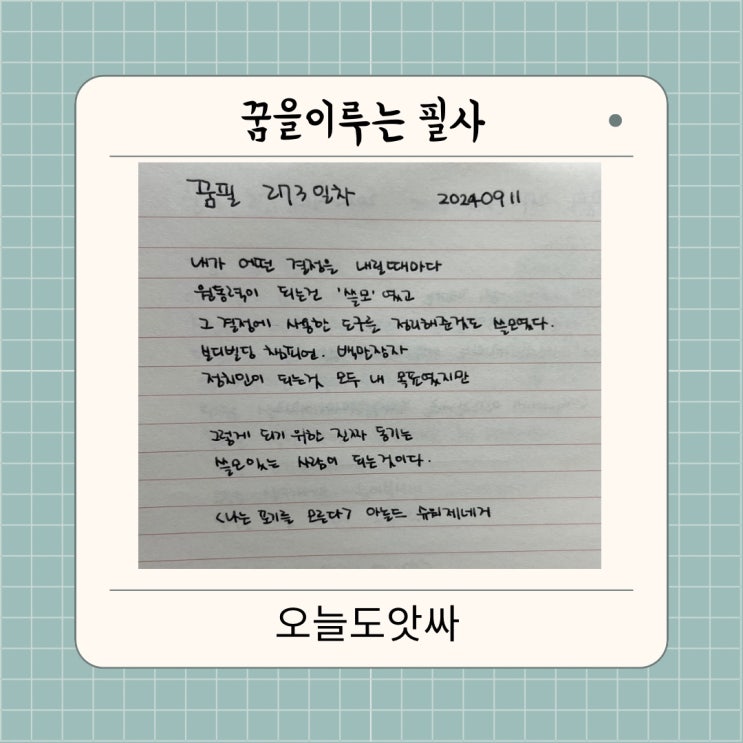 꿈을이루는 필사
꿈필 273일차 20240911
내가 어떤 결정을 내릴때마다
원동력이 되는건 '쓸모' 였고
그 결정에 사용한 도구를 정리해준것도 쓸모였다.
보디빌딩 챔피언. 백만장자
정치인이 되는것 모두 내 목표였지만
그렇게 되기 위한 진짜 동기는
쓸모있는 사람이 되는것이다.
<나는 포기를 모른다> 아놀드 슈워제네거
오늘도앗싸